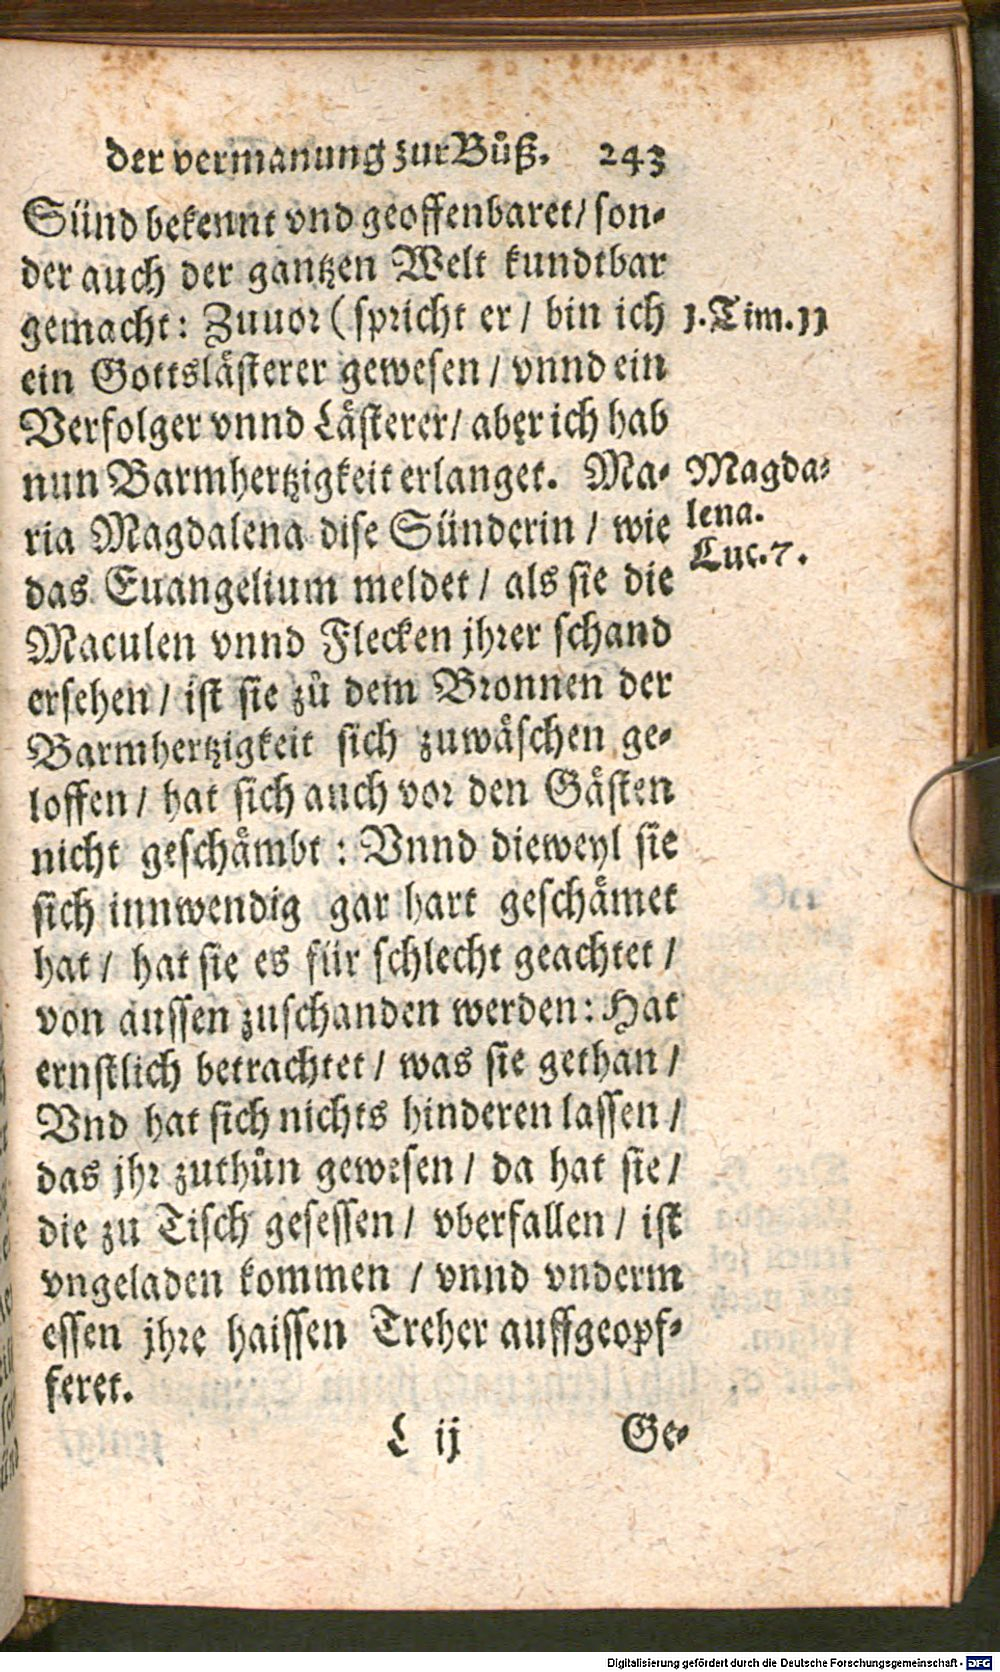 der vermanung zur Bůß. 243
Sünd bekennt vnd geoffenbaret/ son-
der auch der gantzen Welt kundtbar
gemacht: Zuuor (spricht er/ bin ich
1. Tim. 11
ein Gottslästerer gewesen/ vnnd ein
Verfolger vnnd Lästerer/ aber ich hab
nun Barmhertzigkeit erlanget. Ma-
Magda-
ria Magdalena dise Sünderin/ wie
lena.
Luc. 7.
das Euangelium meldet/ als sie die
Maculen vnnd Flecken jhrer schand
ersehen/ ist sie zů dem Bronnen der
Barmhertzigkeit sich zuwäschen ge-
loffen/ hat sich auch vor den Gästen
nicht geschämbt: Vnnd dieweyl sie
sich innwendig gar hart geschämet
hat/ hat sie es für schlecht geachtet/
von aussen zuschanden werden: Hat
ernstlich betrachtet/ was sie gethan/
Vnd hat sich nichts hinderen lassen/
das jhr zuthůn gewesen/ da hat sie/
die zu Tisch gesessen/ vberfallen/ ist
vngeladen kommen/ vnnd vnderm
essen jhre haissen Treher auffgeopf-
feret.
L ij Ge-
Digitalisierung gefördert durch die Deutsche Forschungsgemeinschaft - DFG